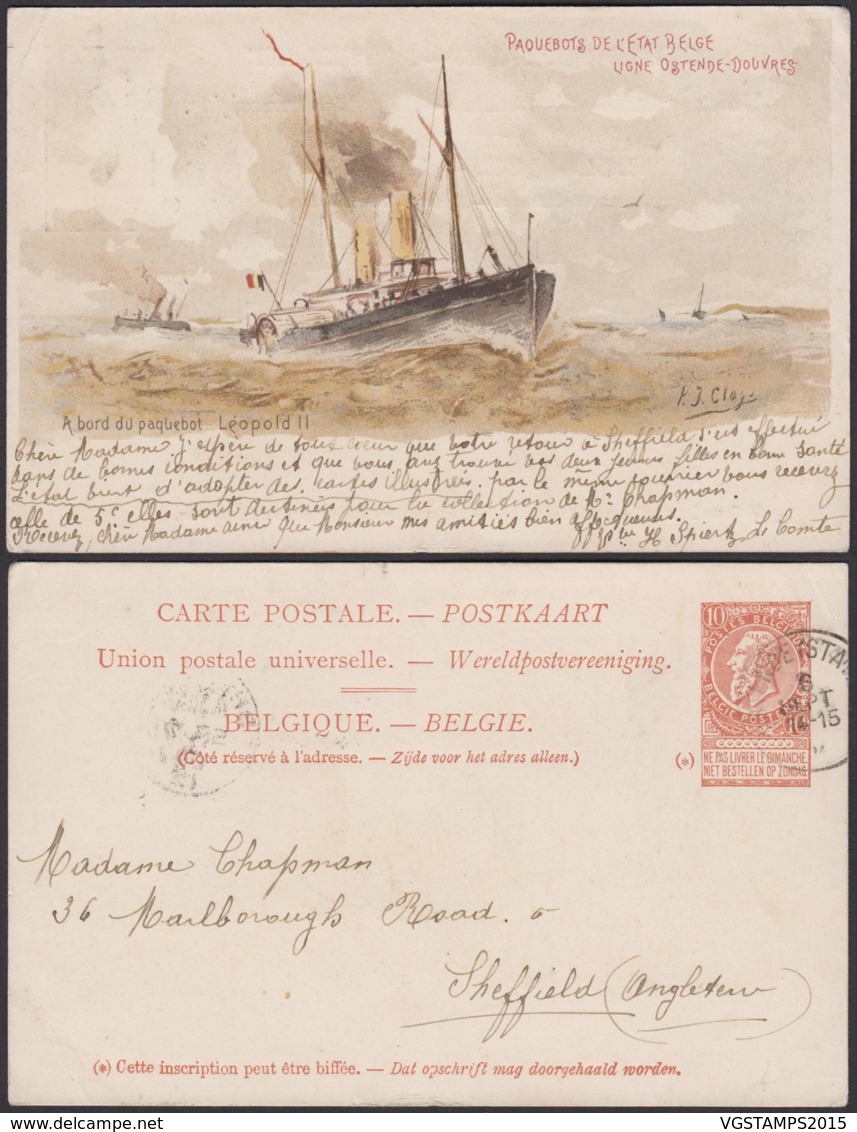 PAQUEBOTS DE L'ETAT BELGE
LIGNE OSTENDE-DOUVRES
P. J. Clays
A bord du paquebot Léopold II
Chère Madame J'espère de tout coeur que votre retour à Sheffield s'est effectué
dans de bonnes conditions et que vous avez trouvé vos deux jeunes filles en bonne santé
L'état vient d'adopter des cartes illustrées. par le même courrier vous recevez
celle de 5c elles sont destinées pour la collection de Mr Chapman.
Recevez, chère Madame ainsi que Monsieur mes amitiés bien affectueuses.
H Spiertz Le Comte
CARTE POSTALE. — POSTKAART
Union postale universelle. — Wereldpostvereeniging.
BELGIQUE. — BELGIE.
(Côté réservé à l'adresse. — Zijde voor het adres alleen.)
(*)
10
POSTES BELGIQUE
BELGIE POSTERIJEN
NE PAS LIVRER LE DIMANCHE
NIET BESTELLEN OP ZONDAG
6
SEPT
14-15
Madame Chapman
36 Marlborough Road.
Sheffield (Angleterre)
(*) Cette inscription peut être biffée. — Dat opschrift mag doorgehaald worden.
VGSTAMPS2015